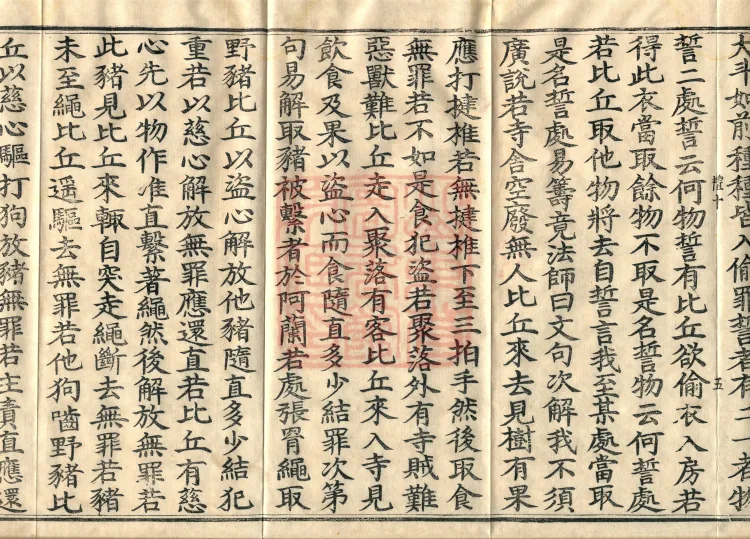 大斗如前種種皆入偷罪誓者有二一者物
禮十 五
誓二處誓云何物誓有比丘欲偷衣入房若
得此衣當取餘物不取是名誓物云何誓處
若比丘取他物將去自誓言我至某處當取
是名誓處易籌竟法師曰文句次解我不須
廣說若寺舍空廢無人比丘來去見樹有果
應打揵椎若無揵椎下至三拍手然後取食
無罪若不如是食犯盜若聚落外有寺賊難
惡獸難比丘走入聚落有客比丘來入寺見
飲食及果以盜心而食隨直多少結罪次第
句易解取豬被繫者於阿蘭若處張罥繩取
野豬比丘以盜心解放他豬隨直多少結犯
重若以慈心解放無罪應還直若比丘有慈
心先以物作准直繫著繩然後解放無罪若
此豬見比丘來輙自突走繩斷去無罪若豬
未至繩比丘遥驅去無罪若他狗嚙野豬比
丘以慈心驅打狗放豬無罪若主責直應還